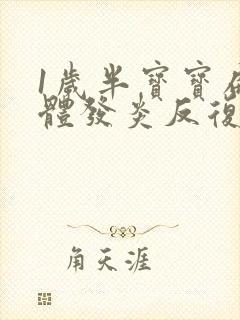 1歲半寶寶
體發炎反復
角天涯